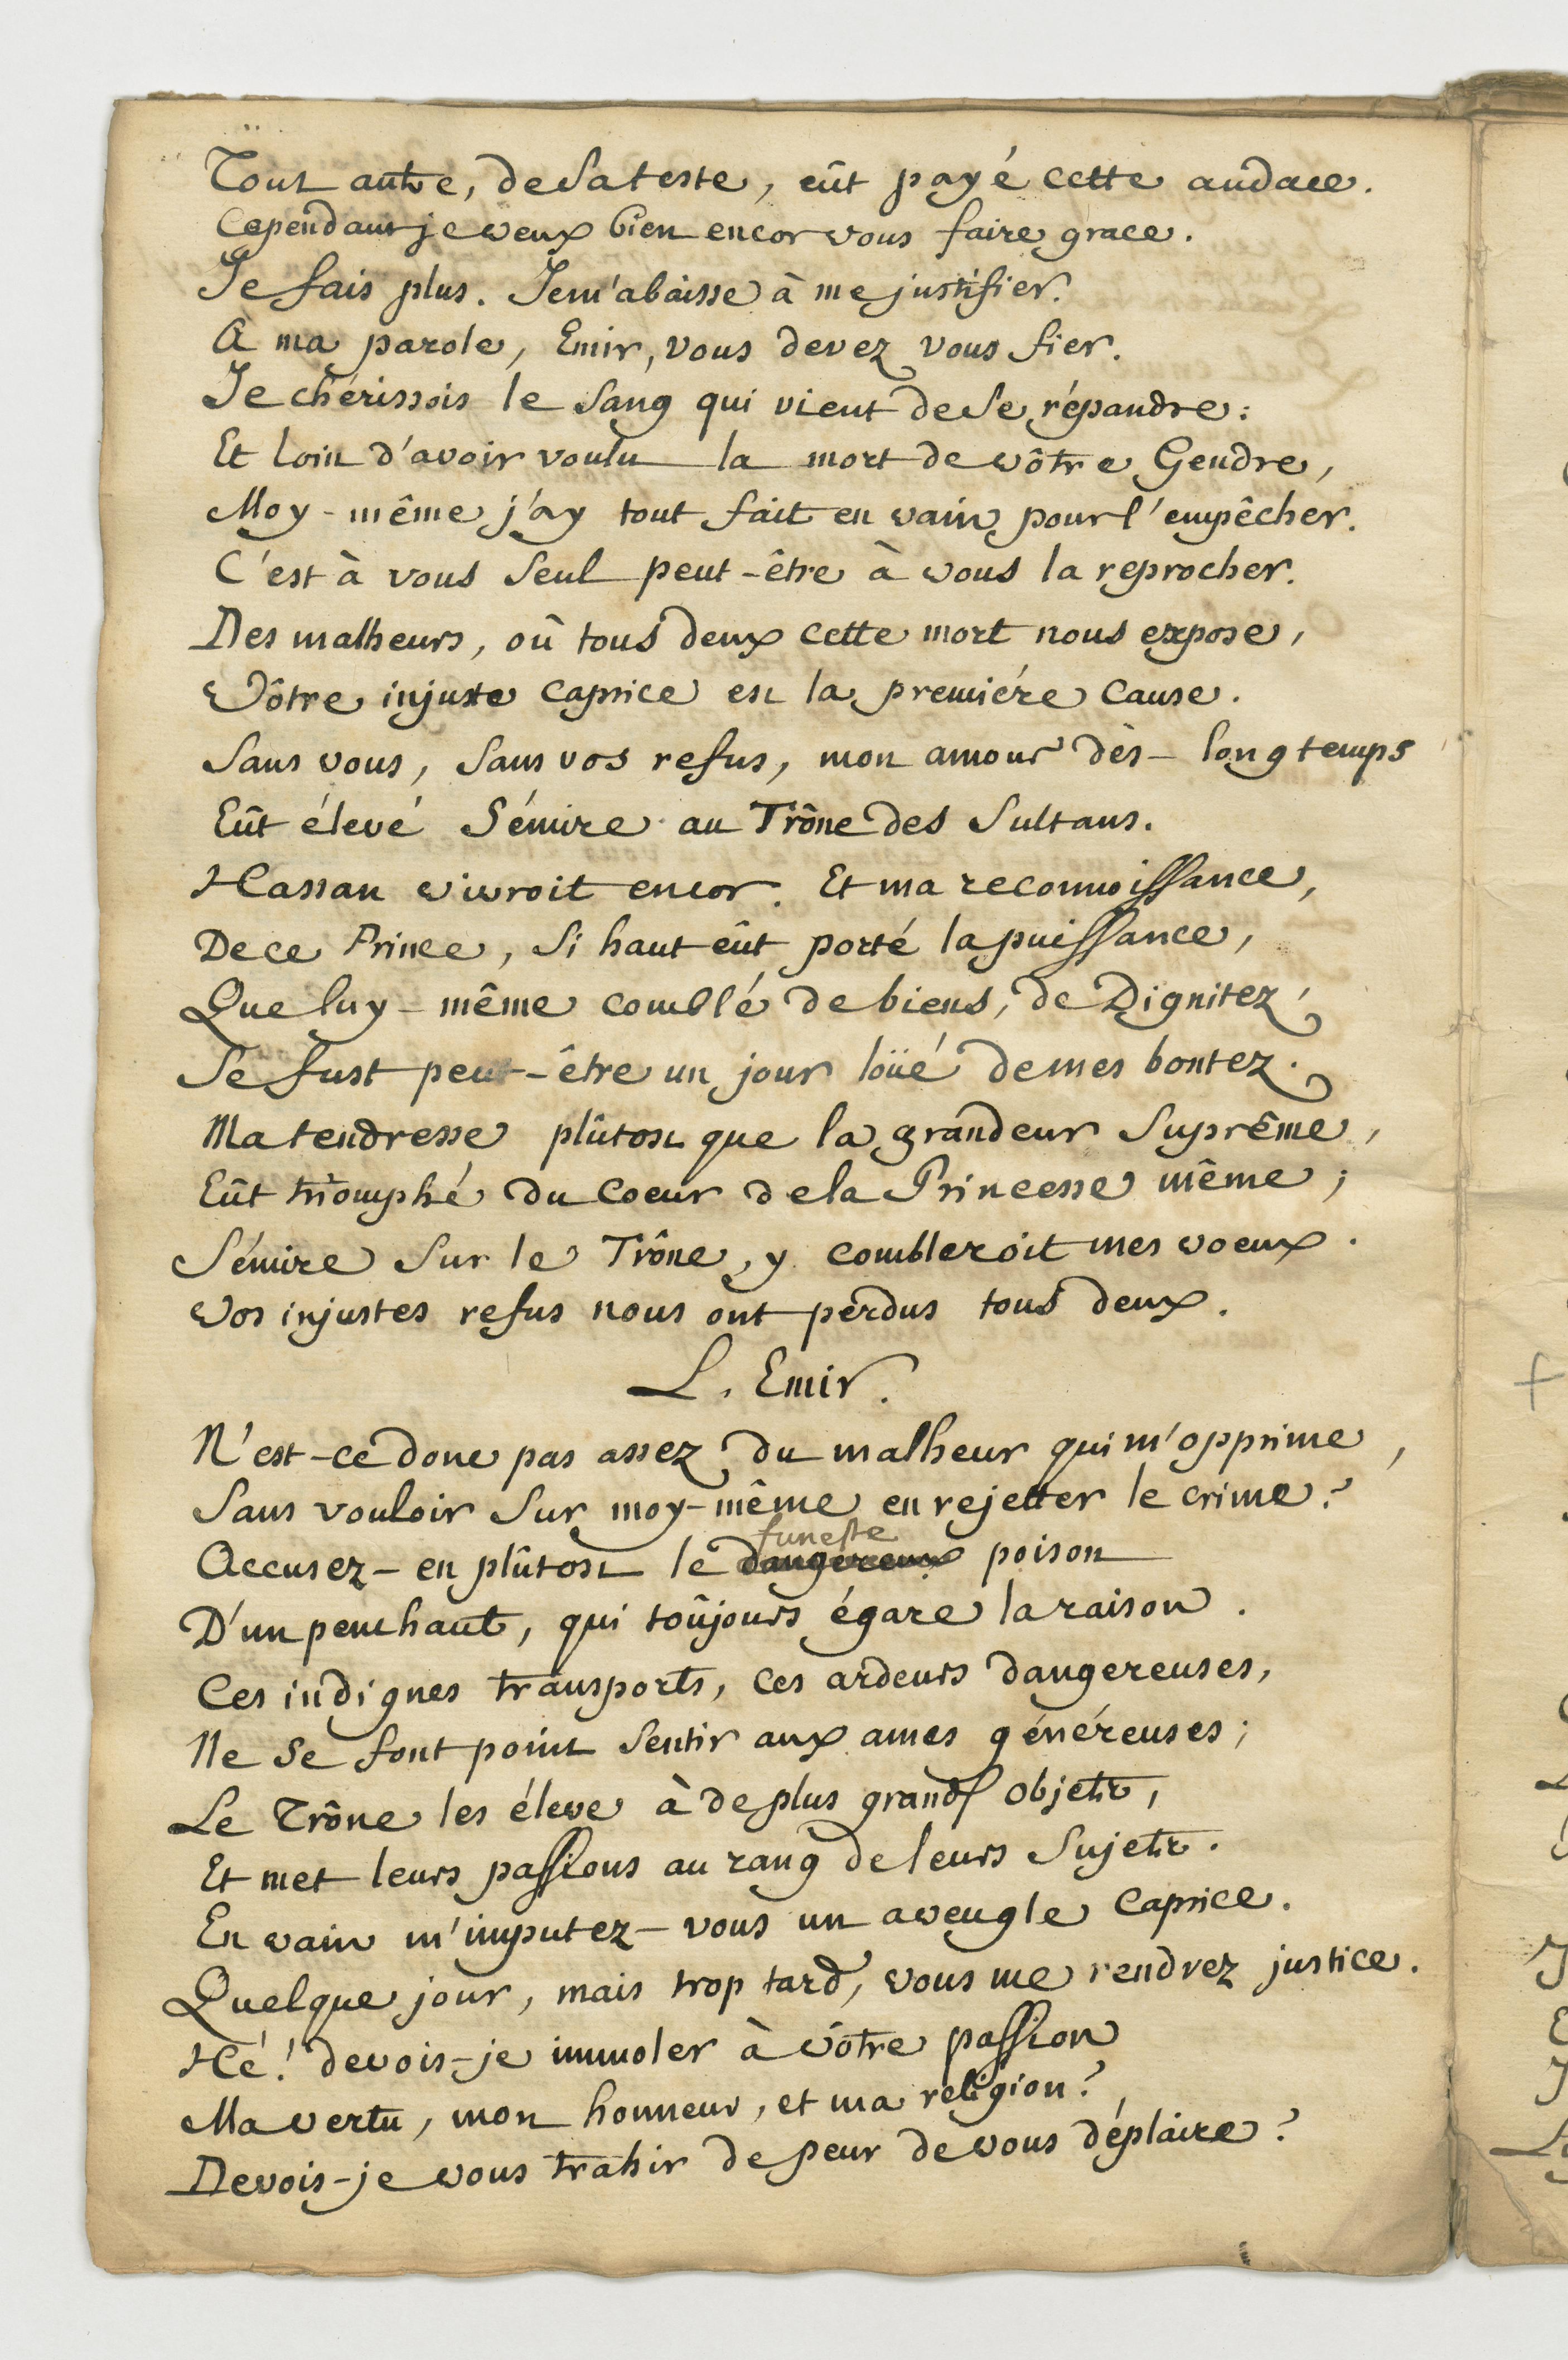 Tout autre, de sa teste, eût payé cette audace.
Cependant je veux bien encor vous faire grace.
Je fais plus. Je m'abaisse à me justifier.
A ma parole, Emir, vous devez vous fier.
Je chérissois le sang qui vient de se répandre:
Et loin d'avoir voulu la mort de vôtre Gendre,
Moy-même j'ay tout fait en vain pour l'empêcher.
C'est à vous seul peut-être à vous la reprocher.
Des malheurs, où tous deux cette mort nous expose,
Vôtre injuste caprice est la premiére cause.
Sans vous, sans vos refus, mon amour dès-longtemps
Eût élevé Sémire au Trône des Sultans.
Hassan vivroit encor. Et ma reconnoissance,
De ce Prince, si haut eût porté la puissance,
Que luy-même comblé de biens, de Dignitez,
Se fust peut-être un jour loüé de mes bontez.
Ma tendresse plûtost que la grandeur Suprême,
Eût triomphé du coeur de la Princesse même;
Sémire sur le Trône, y combleroit mes voeux.
Vos injustes refus nous ont perdus tous deux.
L. Emir.
N'est-ce donc pas assez du malheur qui m'opprime,
Sans vouloir sur moy-même en rejetter le crime?
funeste
Accusez-en plûtost le dangereux poison
D'un penchant, qui toûjours égare la raison.
Ces indignes transports, ces ardeurs dangereuses,
Ne se font point sentir aux ames généreuses;
Le Trône les éleve à de plus grands objets,
Et met leurs passions au rang de leurs Sujets.
En vain m'imputez-vous un aveugle caprice.
Quelque jour, mais trop tard, vous me rendrez justice.
Hé! devois-je immoler à vôtre passion
Ma vertu, mon honneur, et ma religion?
Devois-je vous trahir de peur de vous déplaire?